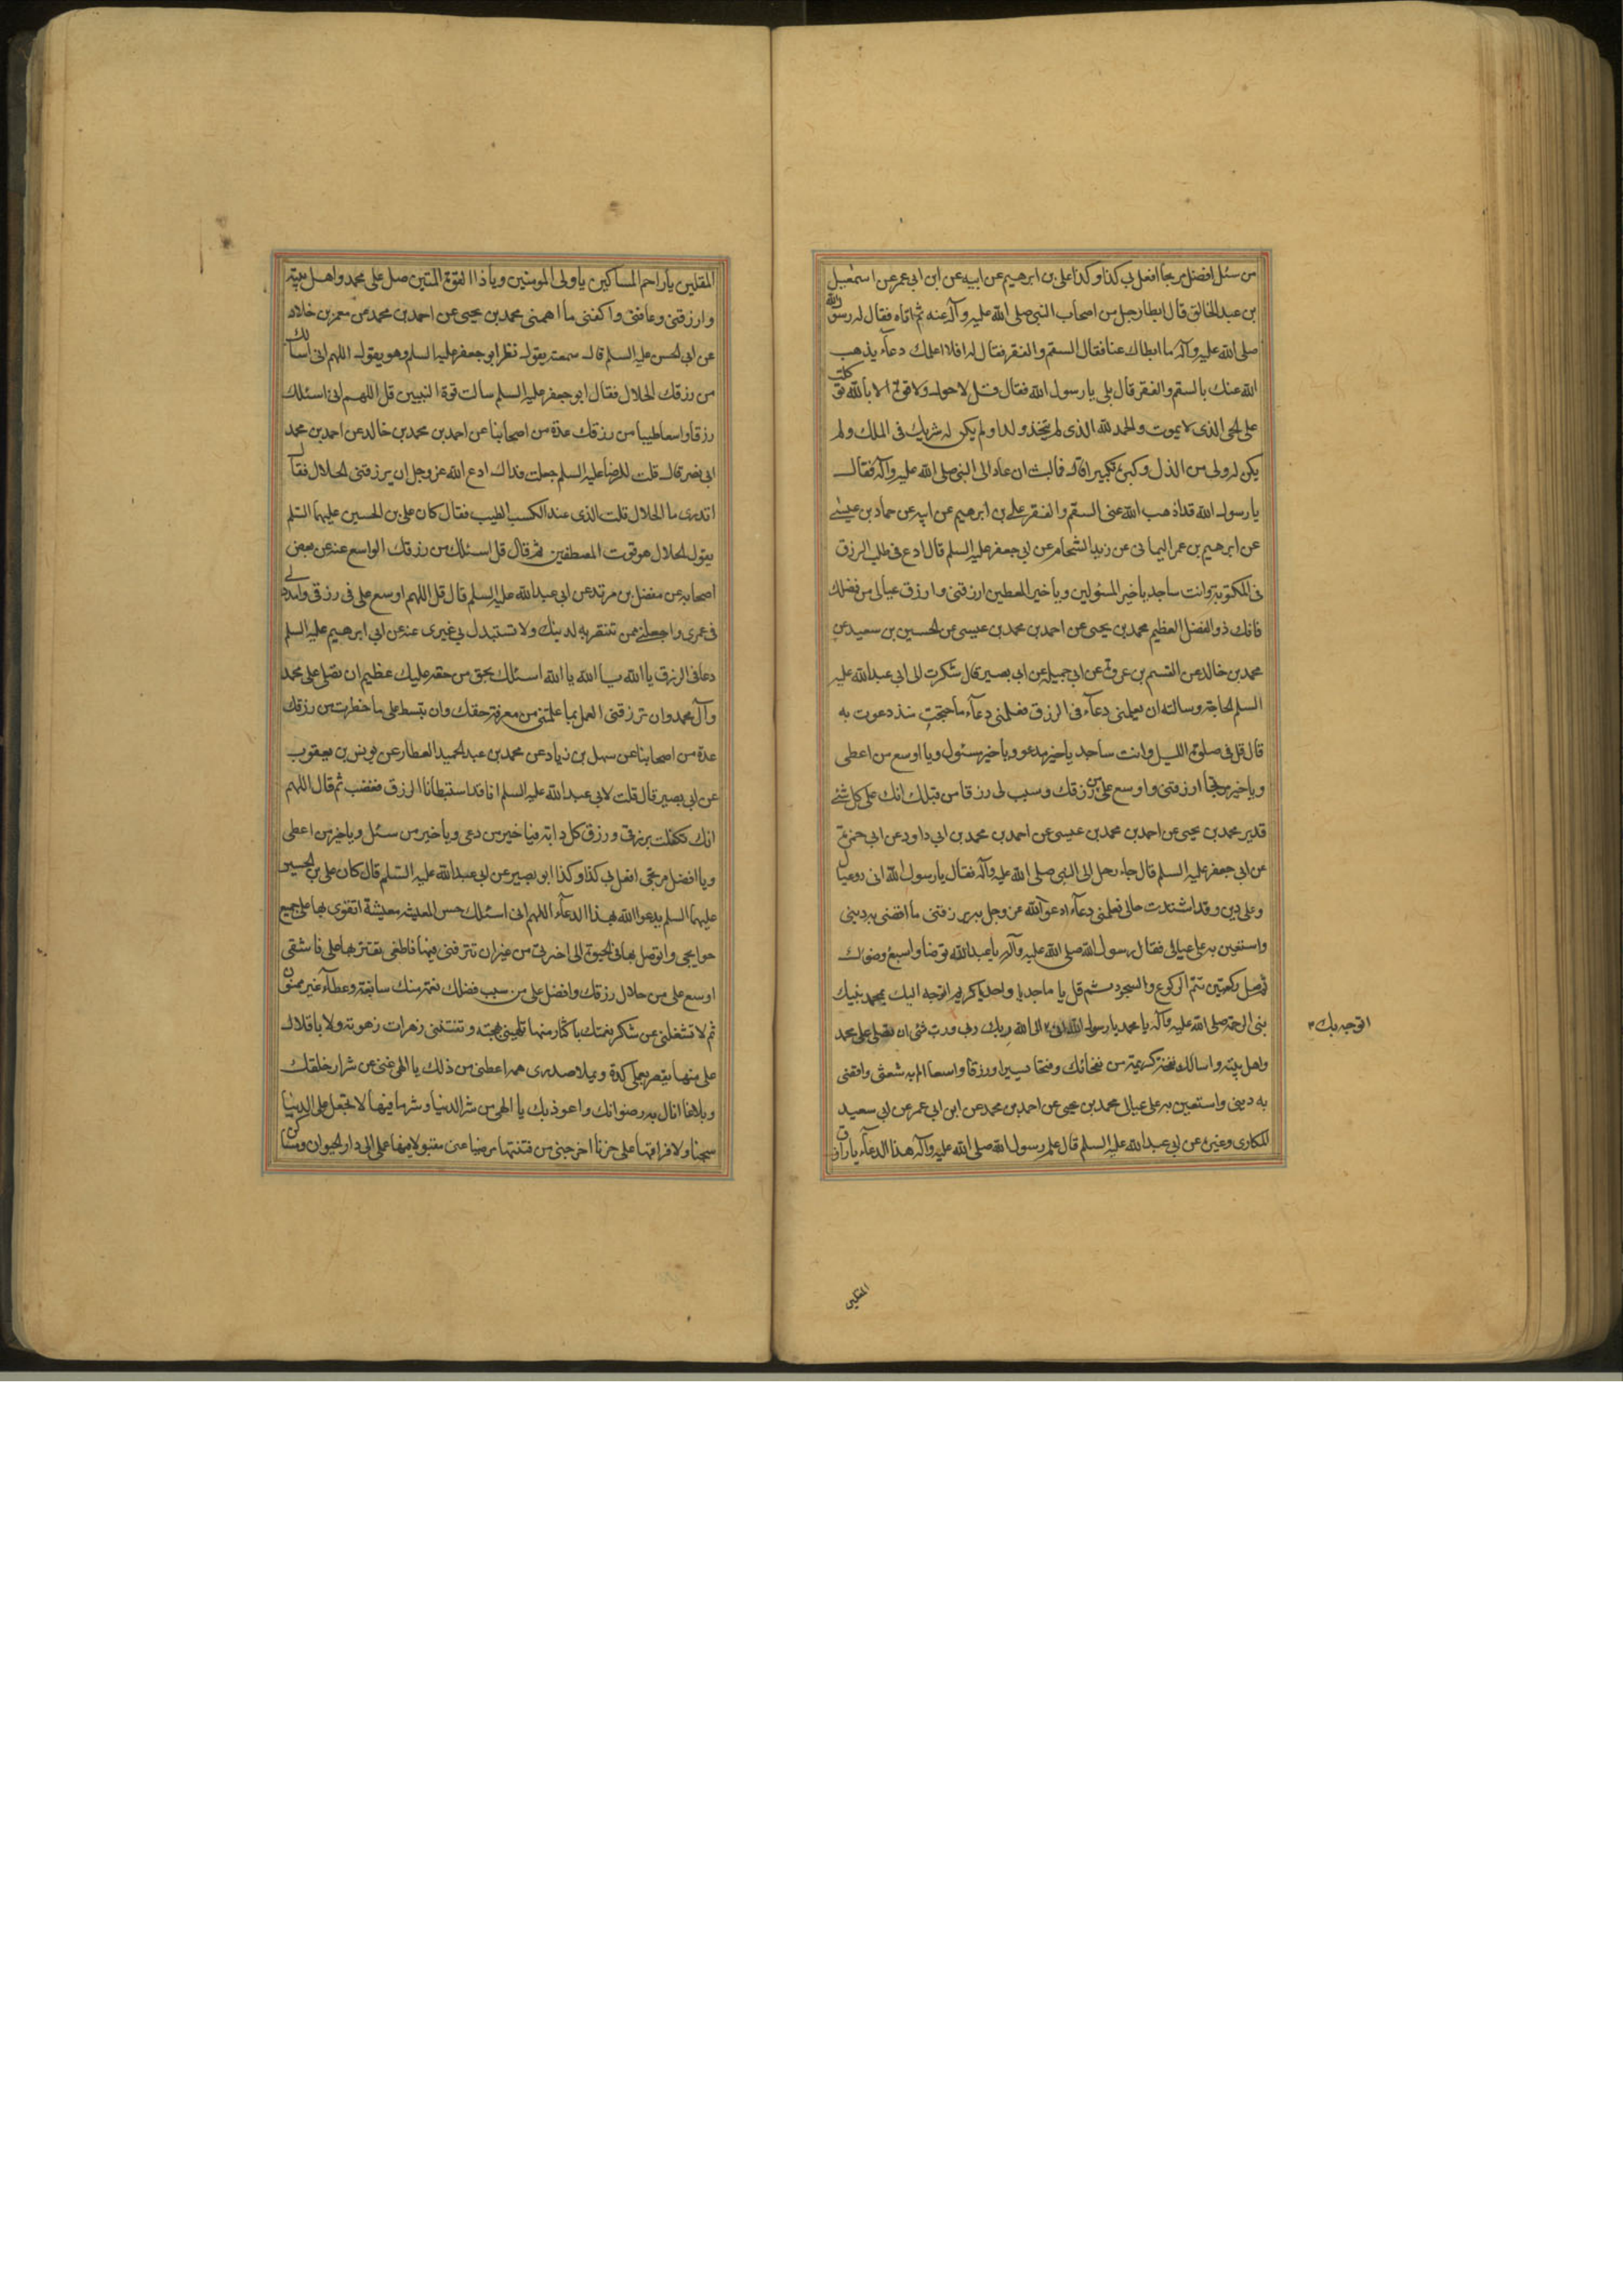 من سئل وافضل مرتجا افعل بي كذا وكذا علي بن ابرهيم عن ابيه عن ابن ابي عمير عن اسمعيل
بن عبد الخالق قال ابطا رجل من اصحاب النبي صلى الله عليه وآله عنه ثم اتاه فقال له رسول الله
صلى الله عليه وآله ما ابطاك عنا فقال السقم والفقر فقال له افلا اعلمك دعآء يذهب
الله عنك بالسقم والفقر قال بلى يا رسول الله فقال قل لا حول ولا قوة الا بالله توكلت
على الحي الذي لا يموت والحمد لله الذي لم يتخذ ولدا ولم يكن له شريك في الملك ولم
يكن له ولي من الذل وكبره تكبيرا قال فما لبث ان عاد الى النبي صلى الله عليه وآله فقال
يا رسول الله قد اذهب الله عني السقم والفقر علي بن ابرهيم عن ابيه عن حماد بن عيسى
عن ابرهيم بن عمر اليماني عن زيد الشحام عن ابي جعفر عليه السلم قال ادع في طلب الرزق
في المكتوبة وانت ساجد يا خير المسئولين ويا خير المعطين ارزقني وارزق عيالي من فضلك
فانك ذو الفضل العظيم محمد بن يحيى عن احمد بن محمد بن عيسى عن الحسين بن سعيد عن
محمد بن خالد عن القسم بن عروة عن ابي جميلة عن ابي بصير قال شكوت الى ابي عبد الله عليه
السلم الحاجة وسالته ان يعلمني دعآء في الرزق فعلمني دعآء ما احتجت منذ دعوت به
قال قل في صلوة الليل وانت ساجد يا خير مدعو ويا خير مسئول ويا اوسع من اعطى
ويا خير مرتجا ارزقني واوسع علي من رزقك وسبب لي رزقا من قبلك انك على كل شئ
قدير محمد بن يحيى عن احمد بن محمد بن عيسى عن احمد بن محمد بن ابي داود عن ابي حمزة
عن ابي جعفر عليه السلم قال جاء رجل الى النبي صلى الله عليه وآله فقال يا رسول الله اني ذو عيال
وعلي دين وقد اشتدت حالي فعلمني دعآء ادعو الله عز وجل به يرزقني ما اقضي به ديني
واستعين به على عيالي فقال رسول الله صلى الله عليه وآله يا عبد الله توضا واسبغ وضوك
ثم صل ركعتين تتم الركوع والسجود ثم قل يا ماجد يا واحد يا كريم اتوجه اليك بمحمد نبيك
نبي الرحمة صلى الله عليه وآله يا محمد يا رسول الله اني الى الله ربك ورب كل شئ ان تصلي على محمد
اتوجه بك
واهل بيته واسالك نفحة كريمة من نفحاتك وفتحا يسيرا ورزقا واسعا الم به شعثي واقضي
به ديني واستعين به على عيالي محمد بن يحيى عن احمد بن محمد عن ابن ابي عمير عن ابي سعيد
المكاري وغيره عن ابي عبد الله عليه السلم قال علم رسول الله صلى الله عليه وآله هذا الدعآء يا رازق
المقلين
المقلين يا راحم المساكين يا ولي المومنين ويا ذا القوة المتين صل على محمد واهل بيته
وارزقني وعافني واكفني ما اهمني محمد بن يحيى عن احمد بن محمد عن معمر بن خلاد
عن ابي الحسن عليه السلم قال سمعته يقول نظر ابو جعفر عليه السلم وهو يقول اللهم اني اسالك
من رزقك الحلال فقال ابو جعفر عليه السلم سالت قوة النبيين قل اللهم اني اسئلك
رزقا واسعا طيبا من رزقك عدة من اصحابنا عن احمد بن محمد بن خالد عن احمد بن محمد
ابي نصر قال قلت للرضا عليه السلم جعلت فداك ادع الله عز وجل ان يرزقني الحلال فقال
اتدري ما الحلال قلت الذي عندنا الكسب الطيب فقال كان علي بن الحسين عليهما السلم
يقول الحلال هو قوت المصطفين ثم قال قل اسئلك من رزقك الواسع عنه عن بعض
اصحابه عن مفضل بن مرتد عن ابي عبد الله عليه السلم قال قل اللهم اوسع علي في رزقي وامدد لي
في عمري واجعلني ممن تنتصر به لدينك ولا تستبدل بي غيري عنه عن ابي ابرهيم عليه السلم
دعا في الرزق يا الله يا الله يا الله اسئلك بحق من حقه عليك عظيم ان تصلي على محمد
وآل محمد وان ترزقني العمل بما علمتني من معرفة حقك وان تبسط علي ما حظرت من رزقك
عدة من اصحابنا عن سهل بن زياد عن محمد بن عبد الحميد العطار عن يونس بن يعقوب
عن ابي بصير قال قلت لابي عبد الله عليه السلم انا قد استبطانا الرزق فغضب ثم قال اللهم
انك تكفلت برزقي ورزق كل دابة فيا خير من دعى ويا خير من سئل ويا خير من اعطى
ويا افضل مرتجى افعل بي كذا وكذا ابو بصير عن ابي عبد الله عليه السلم قال كان علي بن الحسين
عليهما السلم يدعو الله بهذا الدعآء اللهم اني اسئلك حسن المعيشة معيشة اتقوى بها على جميع
حوايجي واتوصل بها في الحيوة الى اخرتي من غير ان تترفني فيها فاطغى او تقتر بها علي فاشقى
اوسع علي من حلال رزقك وافضل علي من سيب فضلك نعمة منك سابغة وعطآء غير ممنون
ثم لا تشغلني عن شكر نعمتك باكثار منها تلهيني بهجته وتفتنني زهرات زهوته ولا باقلال
علي منها يقصر بعملي كده ويملا صدري همه اعطني من ذلك يا الهي غنى عن شرار خلقك
وبلاغا انال به رضوانك واعوذ بك يا الهي من شر الدنيا وشر ما فيها لا تجعل علي الدنيا
سجنا ولا فراقها علي حزنا اخرجني من فتنتها مرضيا عني مقبولا فيها عملي الى دار الحيوان ومساكن